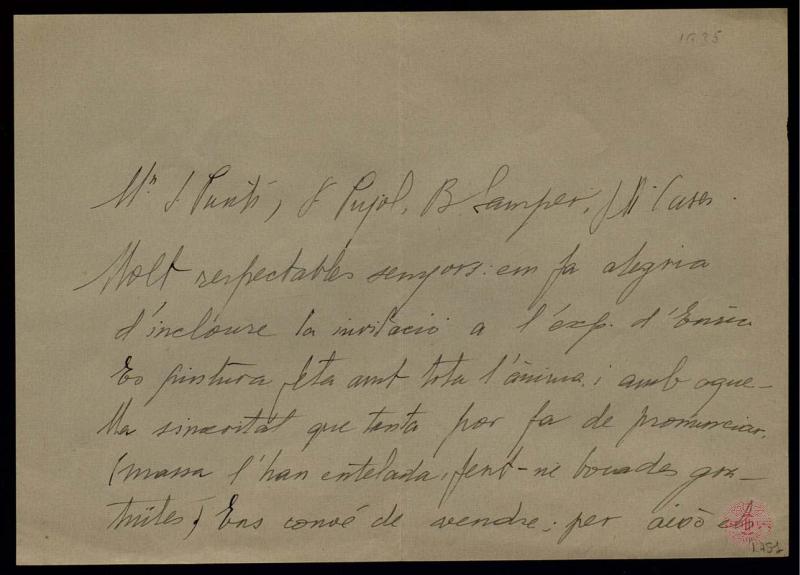 1935
Mn J. Puntí, F Pujol, B Samper, J Mª Cases.
Molt respectables senyors: em fa alegria
d'incloure la invitació a l'exp. d'Enric
Es pintura feta amb tota l'ànima i amb aque-
lla sinceritat que tanta por fa de pronunciar.
(massa l'han entelada, fent-ne bocades gra-
tuïtes) Ens convé de vendre; per això
1.751